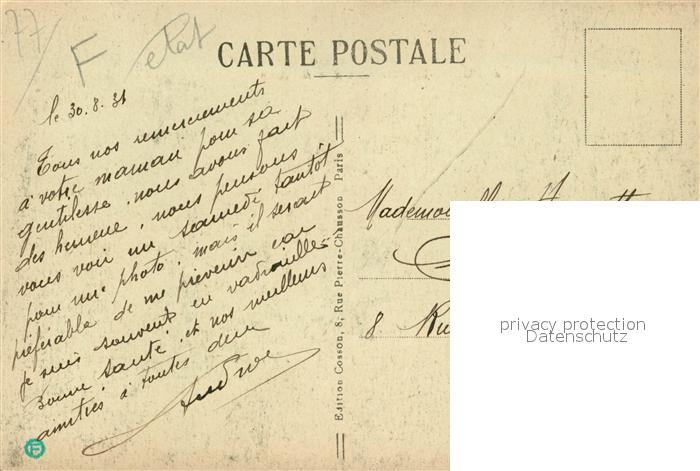 77
F
etat
CARTE POSTALE
le 30.8.31
Tous nos remerciements
à votre maman pour sa
gentilesse, nous avons fait
des heureux, nous pensons
vous voir un samedi tantôt
pour une photo, mais il serait
préférable de me prévenir car
je suis souvent en vadrouille.
Bonne santé et nos meilleurs
amitiés à toutes deux
Edition Cosson, 8, Rue Pierre-Chausson Paris
Mademoiselle
8 Ru
privacy protection
Datenschutz